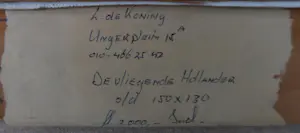 L. de Koning
Ungerplein 15 a
010-466 25 42
De Vliegende Hollander
o/d 150 x 130
2000,-